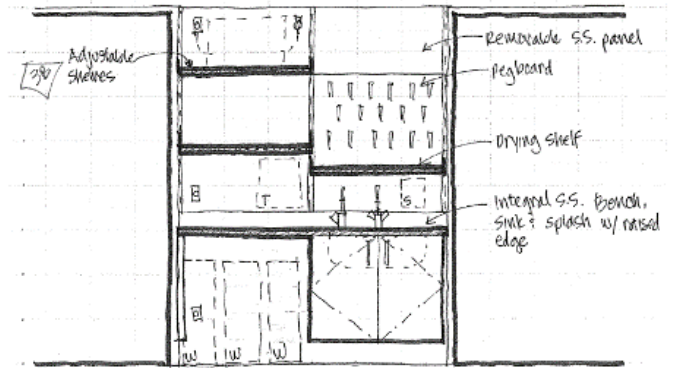 Adjustable
shelves
Removable S.S. panel
Pegboard
Drying shelf
Integral S.S. Bench,
sink & splash w/ raised
edge
T
S
W
W
W